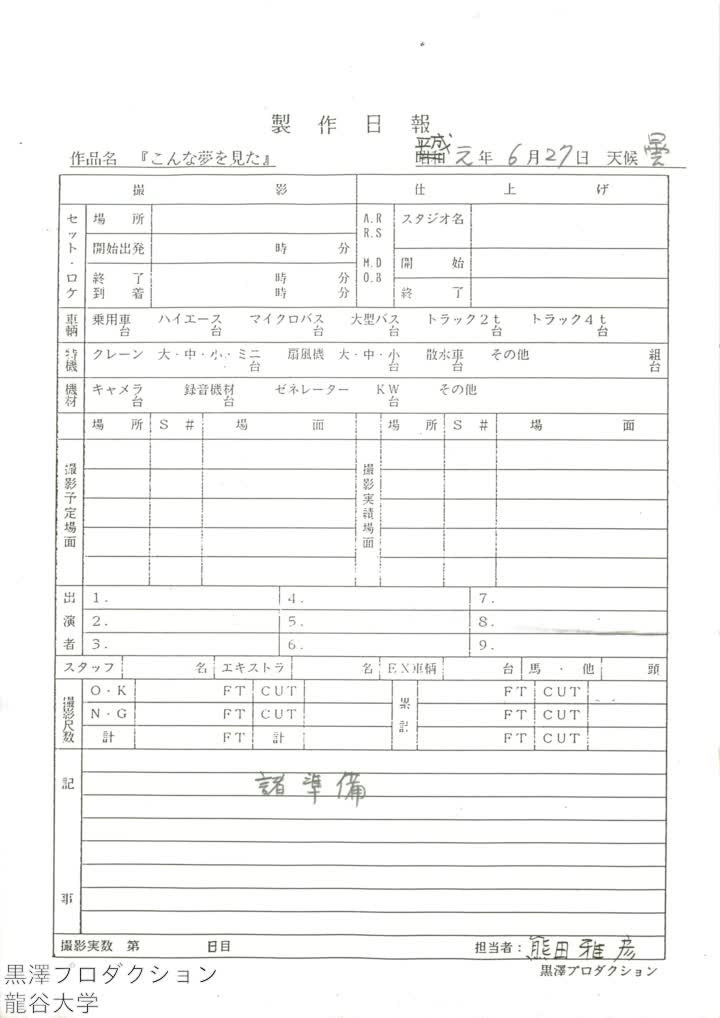 製作日報
作品名 『こんな夢を見た』 平成 昭和 元年 6月27日 天候 曇
撮影 仕上げ
セット・ロケ 場所 A.R R.S M.D O.B スタジオ名
開始出発 時 分 開始
終了 時 分 終了
到着 時 分
車輌 乗用車 台 ハイエース 台 マイクロバス 台 大型バス 台 トラック2t 台 トラック4t 台
特機 クレーン 大・中・小・ミニ 台 扇風機 大・中・小 台 散水車 台 その他 組 台
機材 キャメラ 台 録音機材 台 ゼネレーター KW 台 その他
場所 S# 場面 場所 S# 場面
撮影予定場面 撮影実績場面
出演者 1. 4. 7.
2. 5. 8.
3. 6. 9.
スタッフ 名 エキストラ 名 EX車輌 台 馬・他 頭
撮影尺数 O・K FT CUT 累記 FT CUT
N・G FT CUT FT CUT
計 FT 計 FT CUT
記事
諸準備
撮影実数 第 日目 担当者: 熊田雅彦
黒澤プロダクション
黒澤プロダクション
龍谷大学